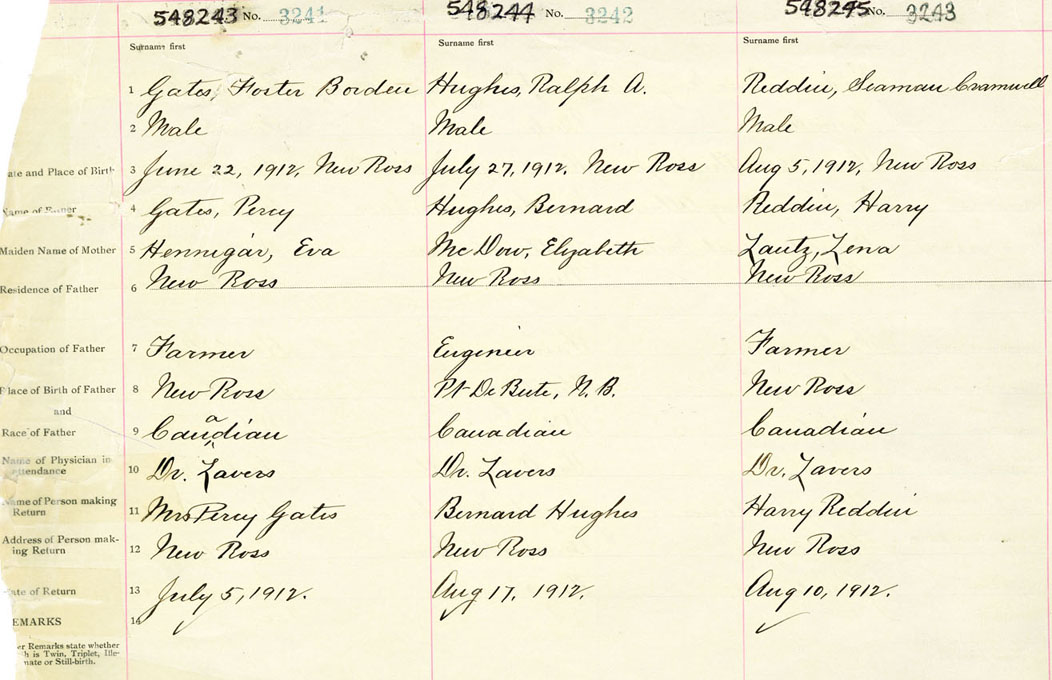 548243 No. 3241 548244 No. 3242 548245 No. 3243
Surname first Surname first Surname first
1 Gates, Foster Borden Hughes, Ralph A. Reddin, Seaman Cramwell
2 Male Male Male
ate and Place of Birth 3 June 22, 1912, New Ross July 27, 1912, New Ross Aug 5, 1912, New Ross
Name of Father 4 Gates, Percy Hughes, Bernard Reddin, Harry
Maiden Name of Mother 5 Hennigar, Eva McDow, Elizabeth Zautz, Lena
Residence of Father 6 New Ross New Ross New Ross
Occupation of Father 7 Farmer Engineer Farmer
Place of Birth of Father 8 New Ross Pt De Bute, N. B. New Ross
and
Race of Father 9 Canadian Canadian Canadian
Name of Physician in
ttendance 10 Dr. Lavers Dr. Lavers Dr. Lavers
Name of Person making
Return 11 Mrs Percy Gates Bernard Hughes Harry Reddin
Address of Person mak-
ing Return 12 New Ross New Ross New Ross
ate of Return 13 July 5, 1912. Aug 17, 1912. Aug 10, 1912.
EMARKS 14
er Remarks state whether
h is Twin, Triplet, Ille-
mate or Still-birth.